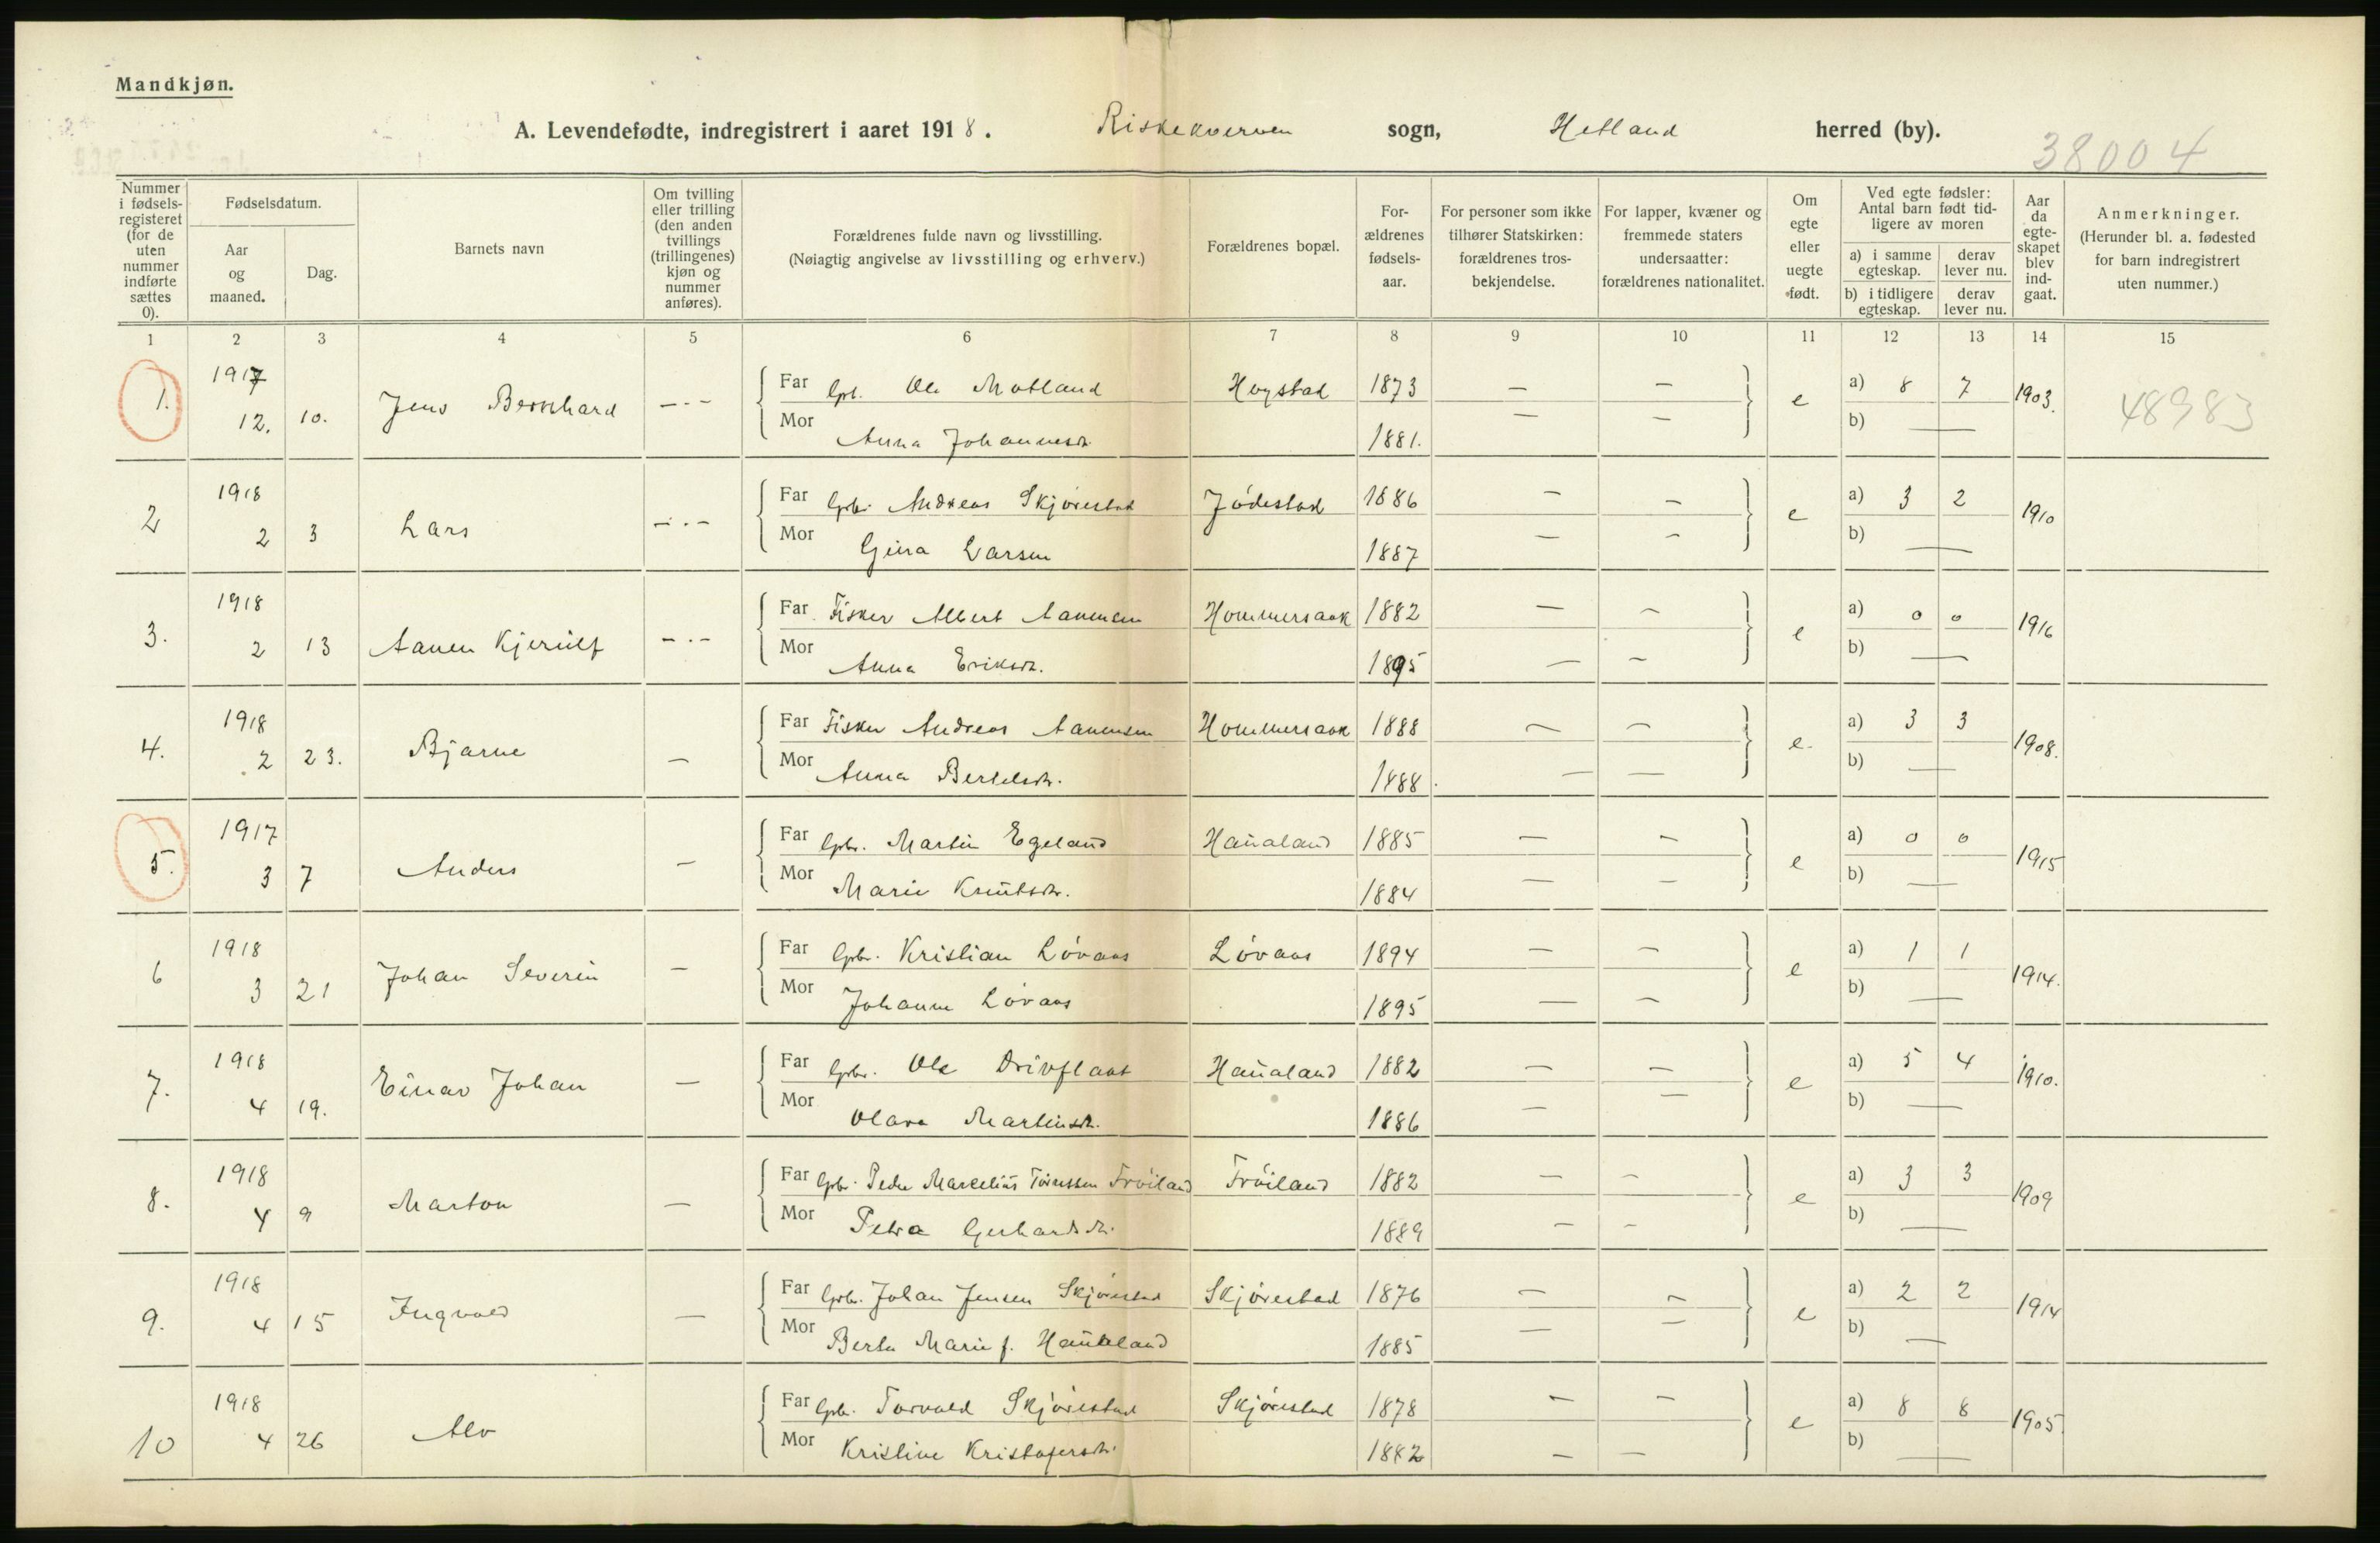 Mandkjøn.
A. Levendefødte, indregistrert i aaret 1918. Riskekverven sogn, Hetland herred (by).
38004
Nummer i fødselsregisteret (for de uten nummer indførte sættes 0).
Fødselsdatum.
Aar og maaned.
Dag.
Barnets navn
Om tvilling eller trilling (den anden tvillings (trillingenes) kjøn og nummer anføres).
Forældrenes fulde navn og livsstilling.
(Nøiagtig angivelse av livsstilling og erhverv.)
Forældrenes bopæl.
Forældrenes fødselsaar.
For personer som ikke tilhører Statskirken: forældrenes trosbekjendelse.
For lapper, kvæner og fremmede staters undersaatter: forældrenes nationalitet.
Om egte eller uegte født.
Ved egte fødsler: Antal barn født tidligere av moren
a) i samme egteskap. derav lever nu.
b) i tidligere egteskap. derav lever nu.
Aar da egteskapet blev indgaat.
Anmerkninger.
(Herunder bl. a. fødested for barn indregistrert uten nummer.)
1 2 3 4 5 6 7 8 9 10 11 12 13 14 15
1. 1917 12. 10. Jens Bernhard — · — Far Gbr. Ole Motland Hogstad 1873 — — e a) 8 7 1903. 48983
Mor Anna Johannesdt. 1881. — — b) —
2 1918 2 3 Lars — · — Far Gbr. Andreas Skjørestad Jødestad 1886 — — e a) 3 2 1910
Mor Gina Larsen 1887 — — b) —
3. 1918 2 13 Aanen Kjerulf — · — Far Fisker Albert Aanensen Hommersaak 1882 — — e a) 0 0 1916
Mor Anna Eriksdt. 1895 — — b) —
4. 1918 2 23. Bjarne — Far Fisker Andreas Aanensen Hommersaak 1888 — — e. a) 3 3 1908.
Mor Anna Bertelsdt. 1888 — — b) —
5. 1917 3 7 Anders — Far Gbr. Martin Egeland Haualand 1885 — — e a) 0 0 1915
Mor Marie Knutsdt. 1884 — — b) —
6 1918 3 21 Johan Severin — Far Gbr. Kristian Løvaas Løvaas 1894 — — e a) 1 1 1914.
Mor Johanne Løvaas 1895 — — b) —
7. 1918 4 19. Einar Johan — Far Gbr. Ole Drivflaat Haualand 1882 — — e a) 5 4 1910.
Mor Olava Martinsdt. 1886 — — b) —
8. 1918 4 9 Marton — Far Gbr. Peder Marcelius Tøressen Frøiland Frøiland 1882 — — e a) 3 3 1909
Mor Petra Gerhardsdt. 1889 — — b) —
9. 1918 4 15 Ingvald — Far Gbr. Johan Jensen Skjørestad Skjørestad 1876 — — e a) 2 2 1914
Mor Berta Marie f. Haukeland 1885 — — b) —
10 1918 4 26 Alv Far Gbr. Torvald Skjørestad Skjørestad 1878 — — e a) 8 8 1905.
Mor Kristine Kristofersdt. 1882 — — b) —